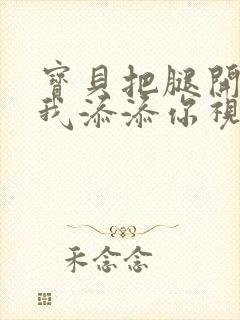 寶貝把腿開
我添添你視
禾念念